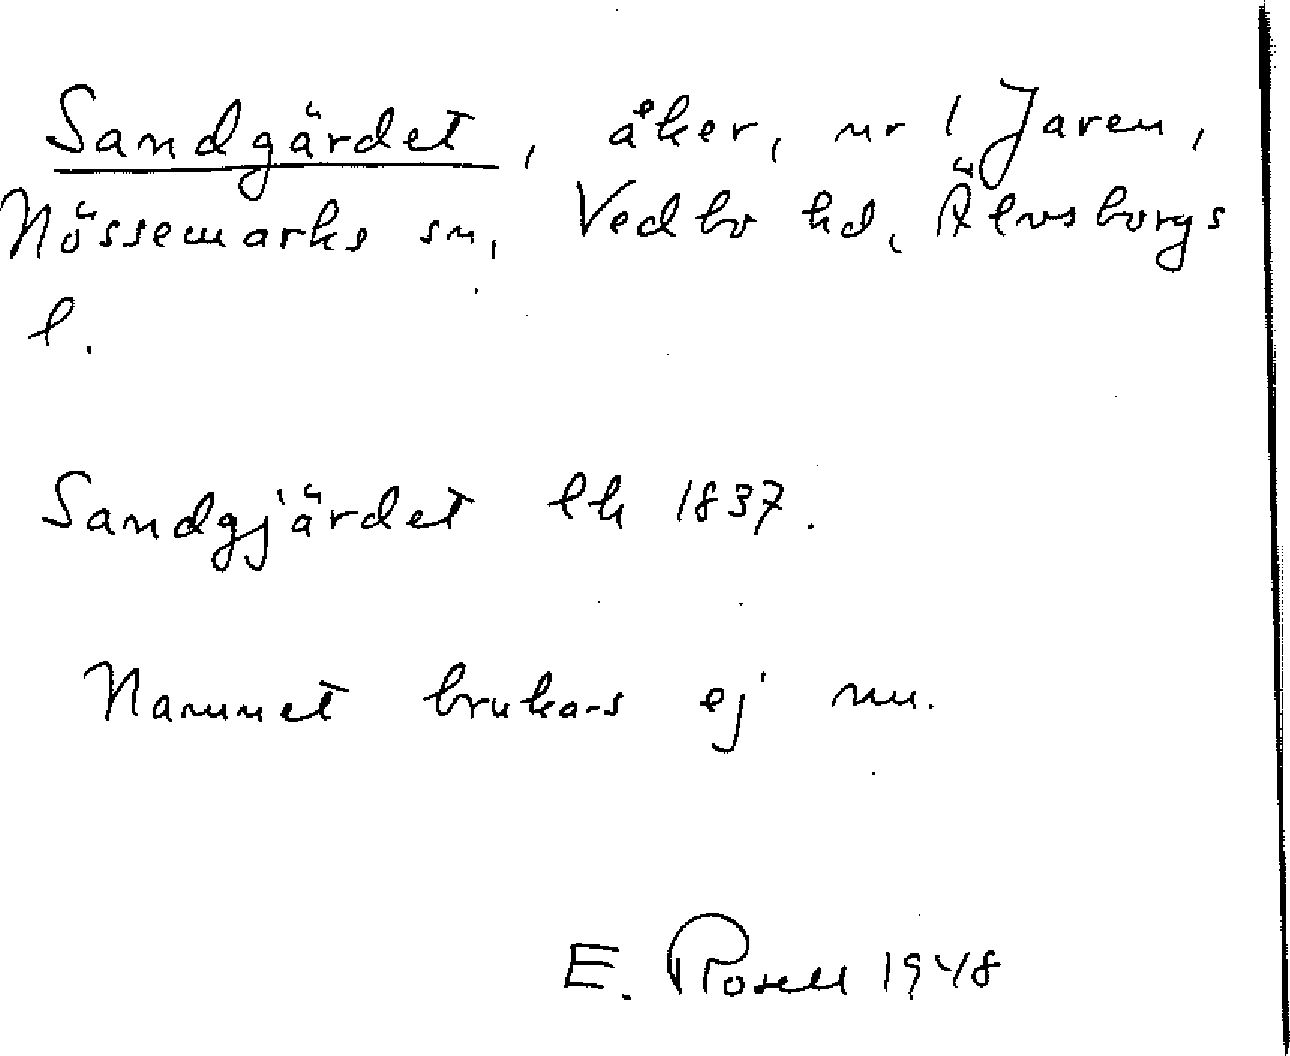 Sandgärdet, åker, nr 1 Jaren,
Nössemarks sn, Vedbo hd, Älvsborgs
l.
Sandgjärdet lk 1837.
Namnet brukas ej nu.
E. Rosell 1948